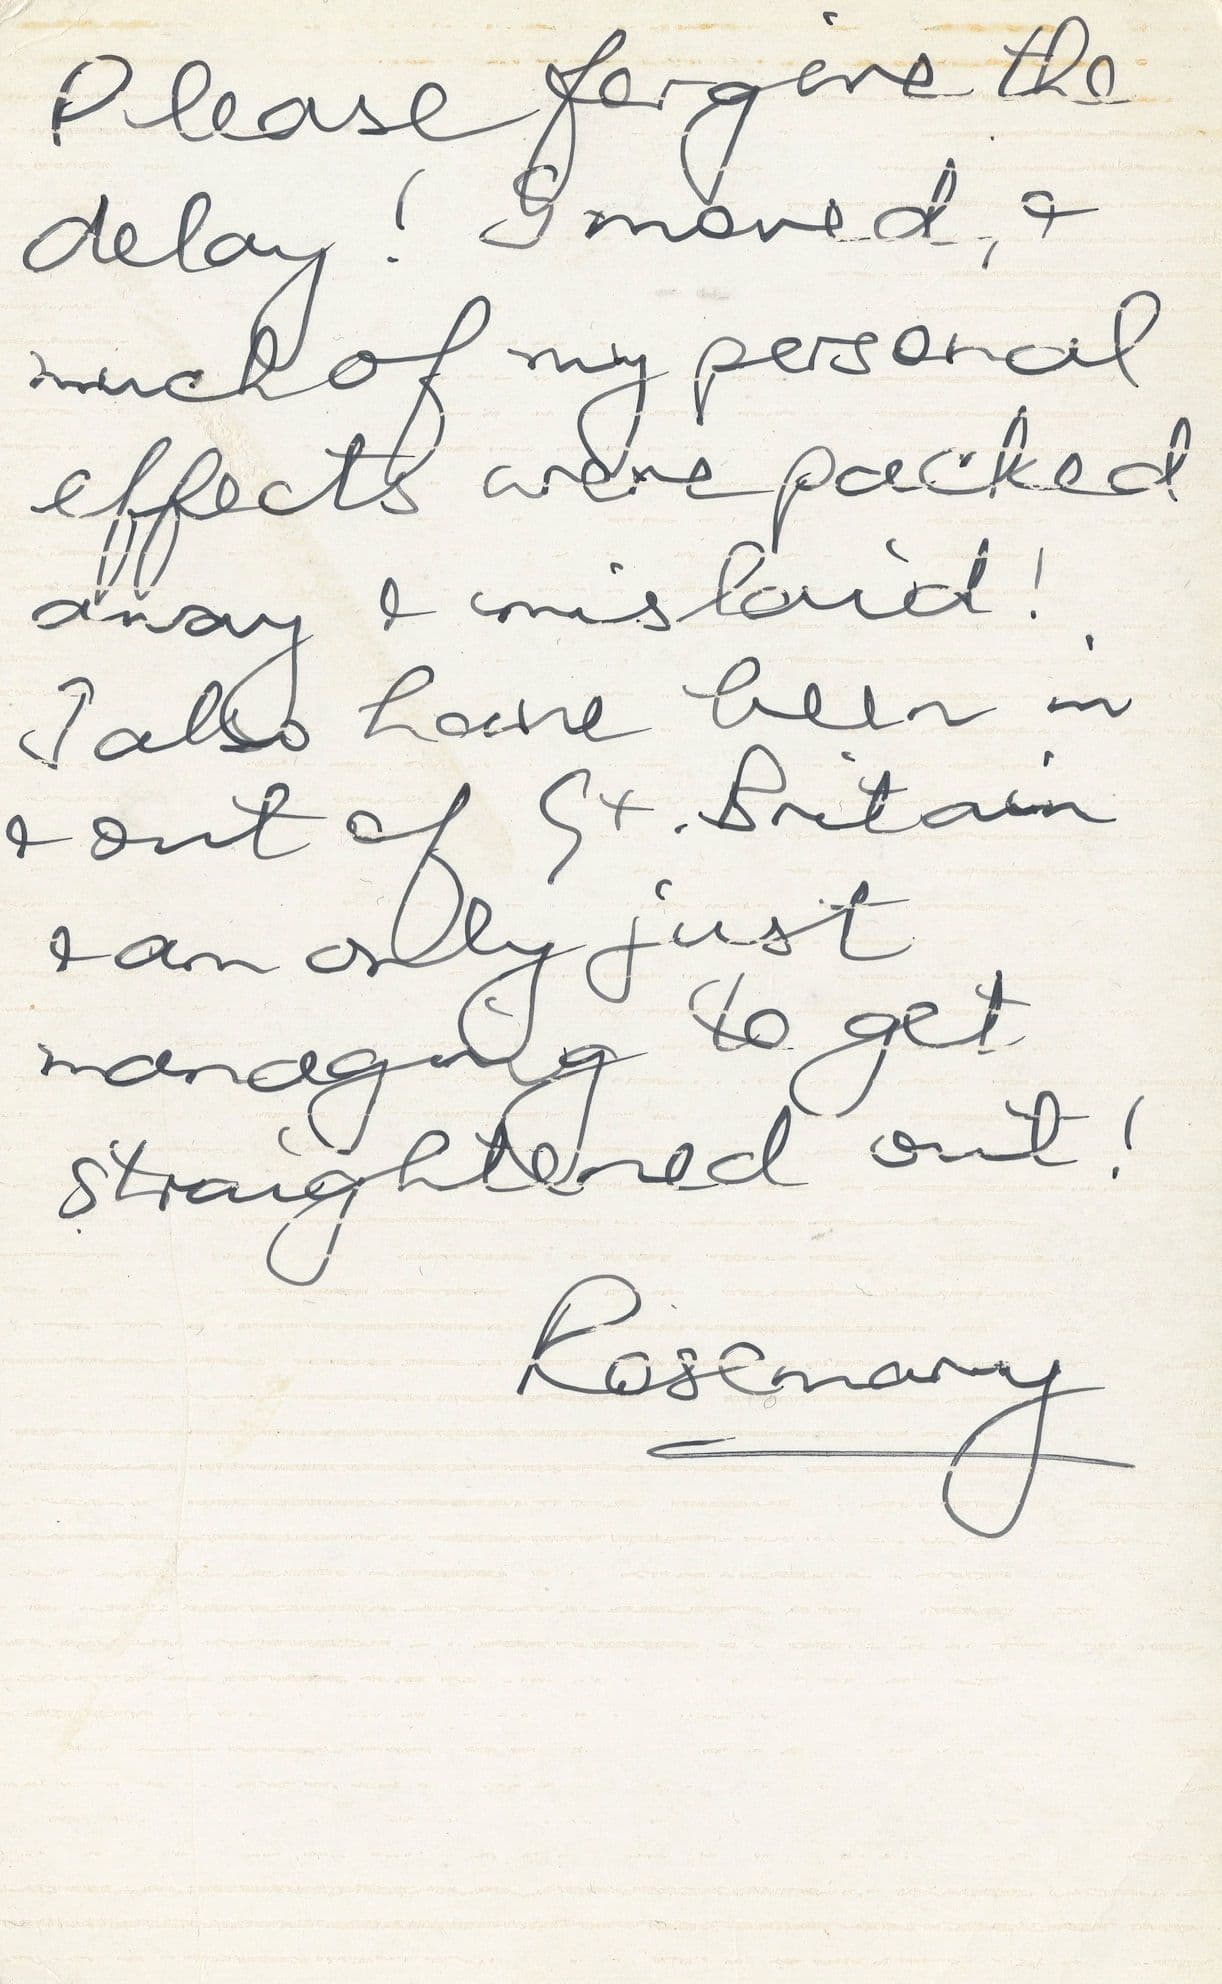 Please forgive the
delay! I moved, &
much of my personal
effects were packed
away & mislaid!
I also have been in
& out of Gt. Britain
& am only just
managing to get
straightened out!
Rosemary